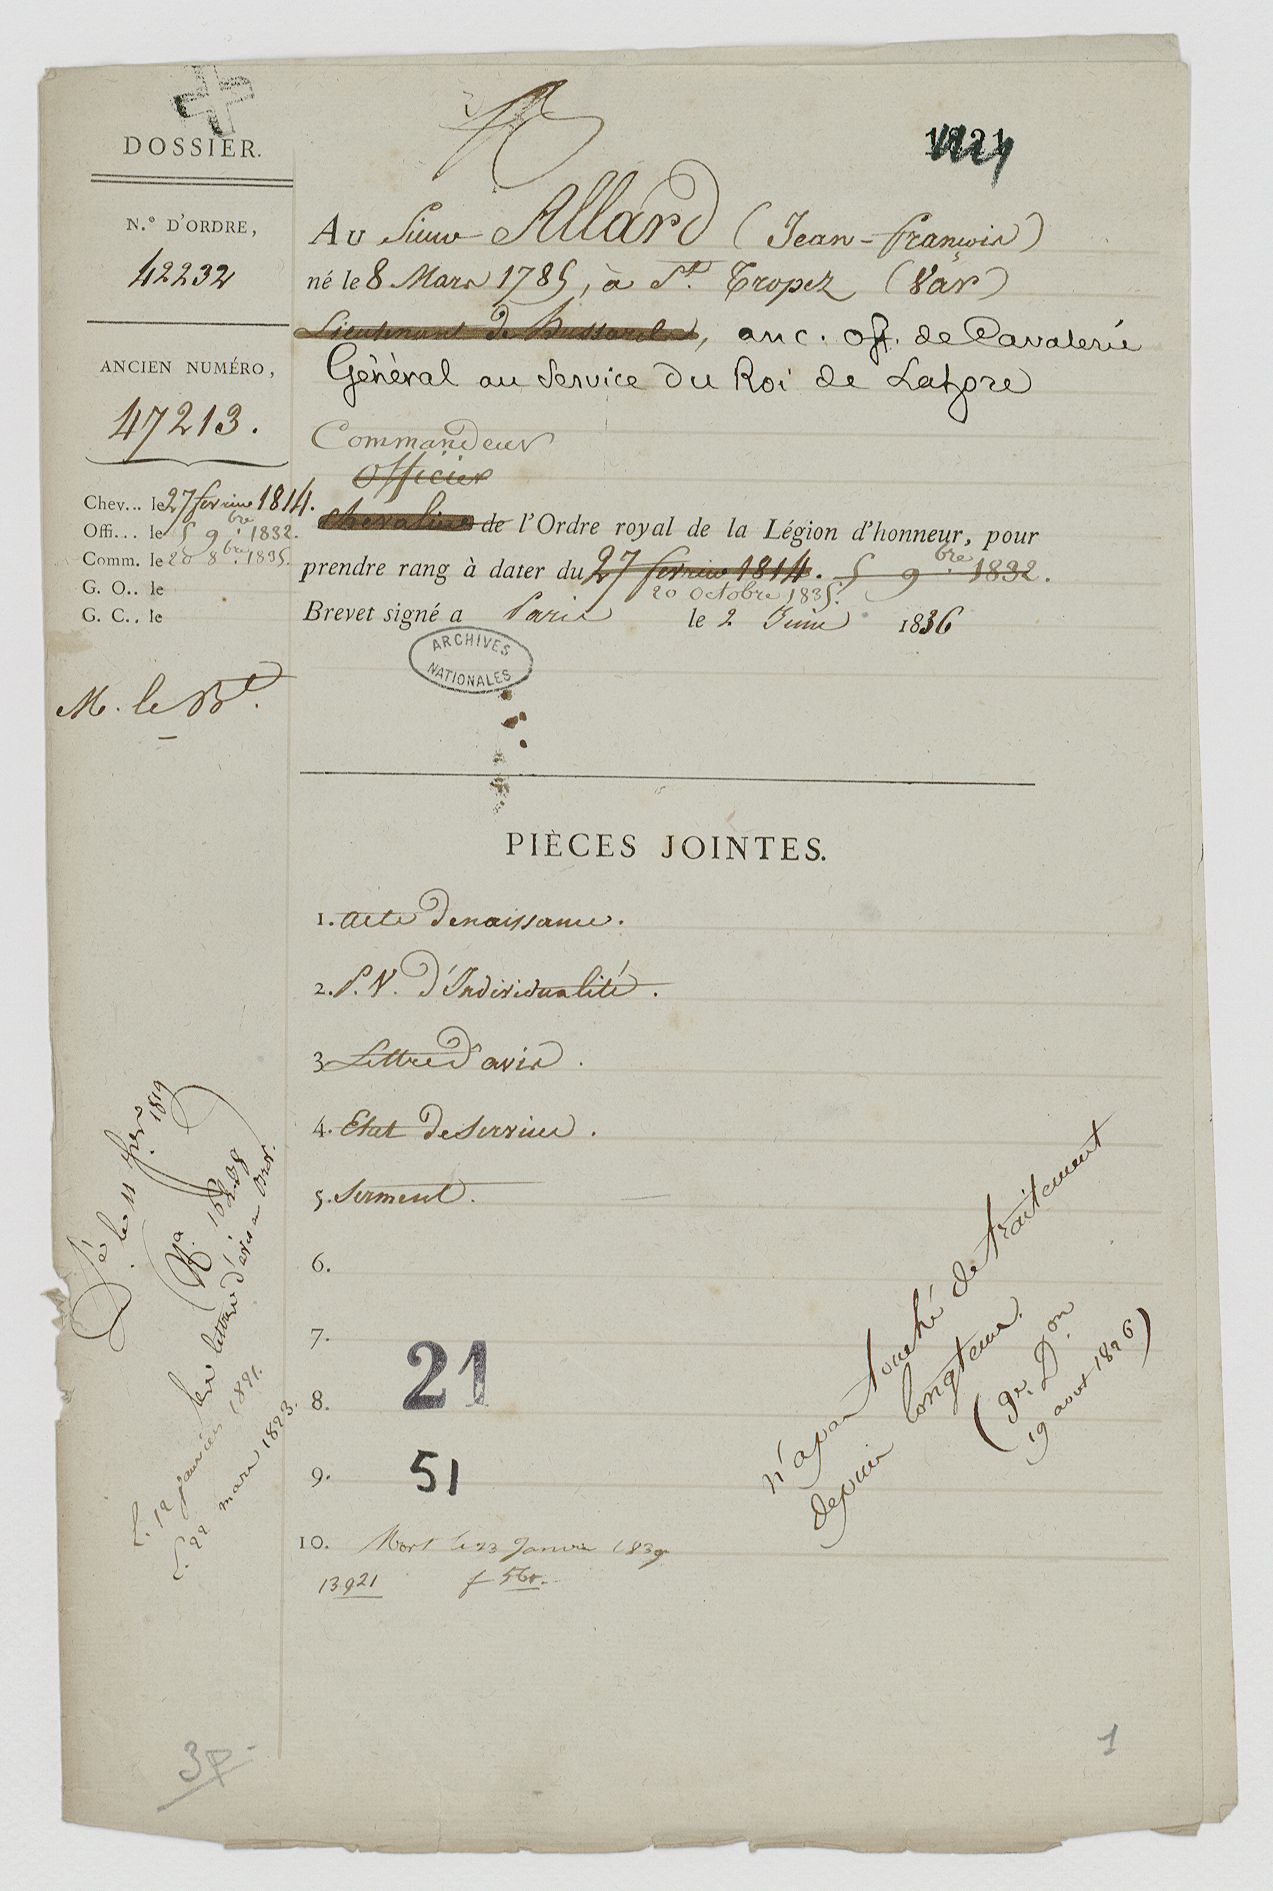 DOSSIER.
N.º D'ORDRE,
42232
ANCIEN NUMÉRO,
47213.
Chev... le 27 fevrier 1814.
Offi... le 5 9.bre 1832.
Comm. le 20 8bre. 1835.
G. O.. le
G. C.. le
M. le Bt.
Au Sieur Allard (Jean-françois)
né le 8 Mars 1785, à St. Tropez (Var)
Lieutenant de Hussards, anc. off. de Cavalerie
Général au service du Roi de Lahore
Commandeur
Officier
chevalier de l'Ordre royal de la Légion d'honneur, pour
prendre rang à dater du 27 fevrier 1814. 5 9bre 1832.
20 Octobre 1835.
Brevet signé a Paris le 2 Juin 1836
ARCHIVES
NATIONALES
PIÈCES JOINTES.
1. acte de naissance.
2. P.V. d'Individualité.
3 Lettre d'avis.
4. Etat de services.
5. Serment.
6.
7.
8.
9.
10. Mort le 23 Janvier 1839
13921 f 560.
21
51
n'a pas touché de traitement
depuis longtems.
(gr. Don
19 aout 1826)
le 11 fer 1819
Ra. 16208
lettre d'avis
L. 12 janvier 1821.
L. 22 mars 1823.
3P
1